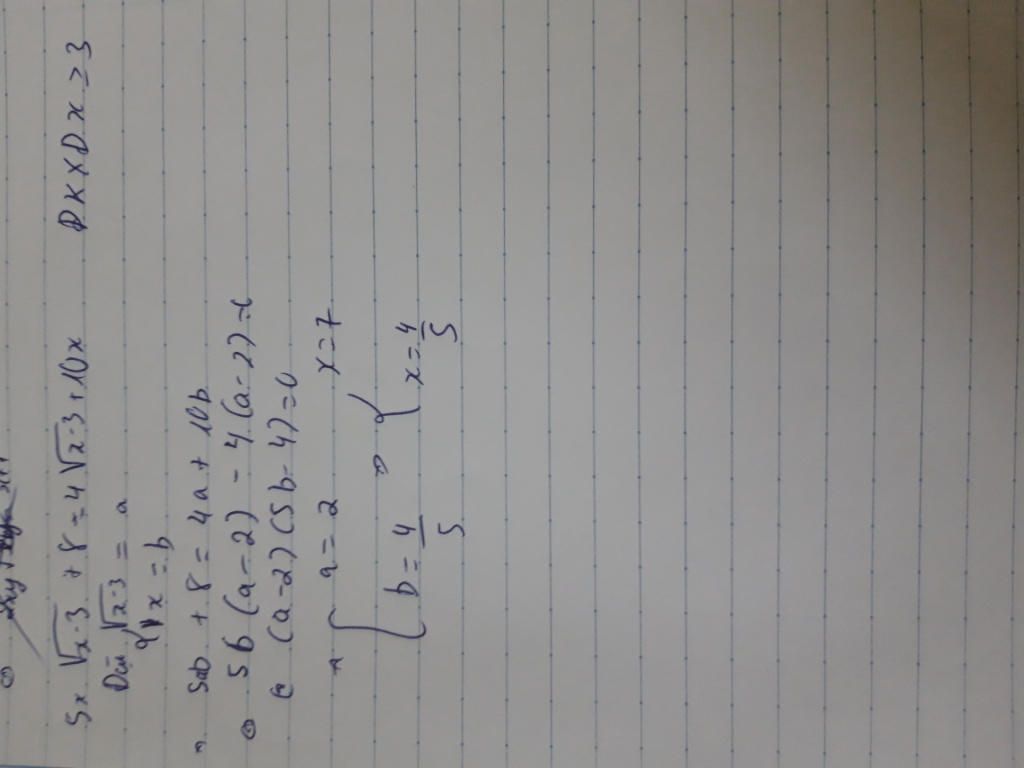 5x √x-3 + 8 = 4√x-3 + 10x ĐKXĐ x ≥ 3
Đặt √x-3 = a
x = b
⇒ 5ab + 8 = 4a + 10b
⇔ 5b (a-2) - 4 (a-2) = 0
(a-2) (5b-4) = 0
⇒ { a = 2 x = 7
b = 4/5 ⇒ { x = 4/5